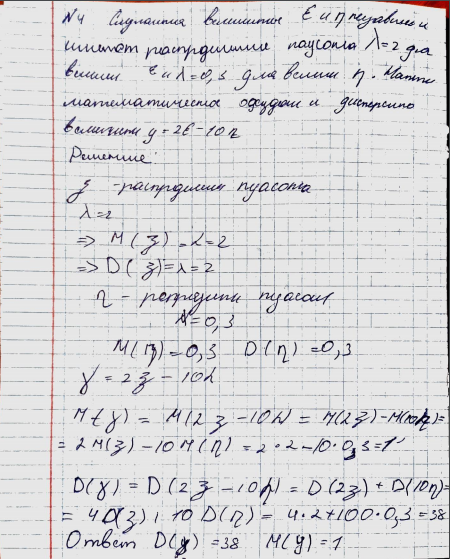 N4 Случайные величины ξ и η независимы и
имеют распределение пуасона λ=2 для
величины ξ и λ=0,3 для величины η. Найти
математическое ожидание и дисперсию
величины y = 2ξ-10η
Решение:
ξ - распределение пуасона
λ=2
=> M(ξ) = λ = 2
=> D(ξ) = λ = 2
η - распределение пуасона
λ=0,3
M(η)=0,3 D(η)=0,3
γ = 2ξ - 10η
M(γ) = M(2ξ - 10η) = M(2ξ) - M(10η) =
= 2M(ξ) - 10M(η) = 2·2-10·0,3=1
D(γ) = D(2ξ - 10η) = D(2ξ) + D(10η) =
= 4D(ξ) + 10D(η) = 4·2+100·0,3=38
Ответ D(γ) = 38 M(γ) = 1